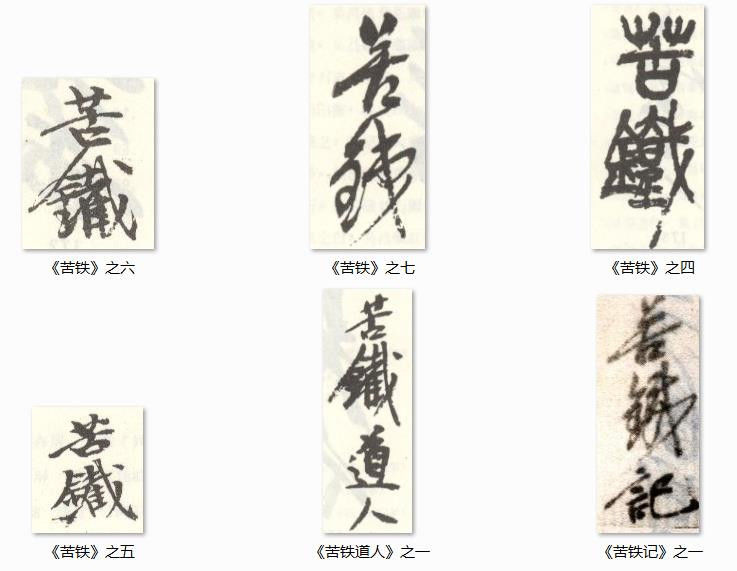 苦鐵
《苦铁》之六
苦鐵
《苦铁》之七
苦鐵
《苦铁》之四
苦鐵
《苦铁》之五
苦鐵道人
《苦铁道人》之一
苦鐵記
《苦铁记》之一